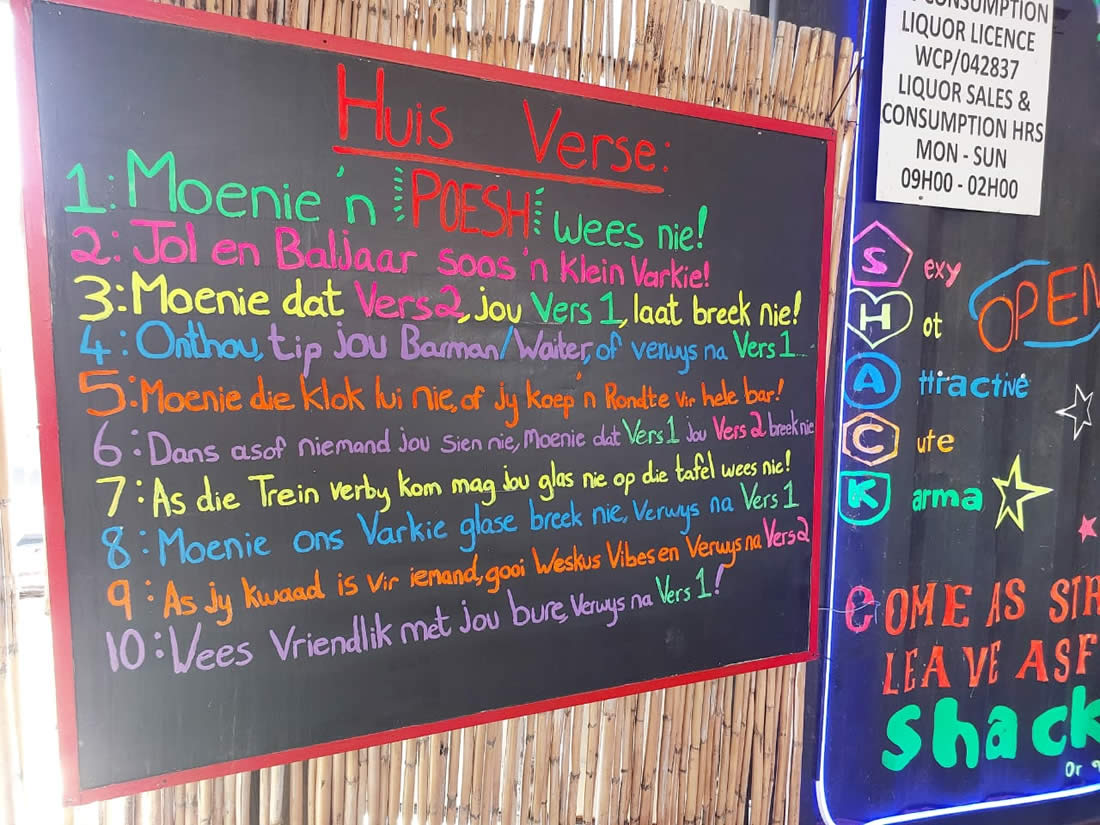 Huis Verse:
1: Moenie 'n POESH wees nie!
2: Jol en Baljaar soos 'n Klein Varkie!
3: Moenie dat Vers 2, jou Vers 1, laat breek nie!
4: Onthou, tip jou Barman/Waiter, of verwys na Vers 1
5: Moenie die klok lui nie, of jy koep 'n Rondte vir hele bar!
6: Dans asof niemand jou sien nie, Moenie dat Vers 1 jou Vers 2 breek nie
7: As die Trein verby kom mag jou glas nie op die tafel wees nie!
8: Moenie ons Varkie glase breek nie, Verwys na Vers 1
9: As jy kwaad is vir iemand, gooi Weskus Vibes en Verwys na Vers 2
10: Wees Vriendlik met jou bure, Verwys na Vers 1!
CONSUMPTION
LIQUOR LICENCE
WCP/042837
LIQUOR SALES &
CONSUMPTION HRS
MON - SUN
09H00 - 02H00
Sexy
Hot
Attractive
Cute
Karma
OPEN
COME AS
LEAVE AS
Shack
Or